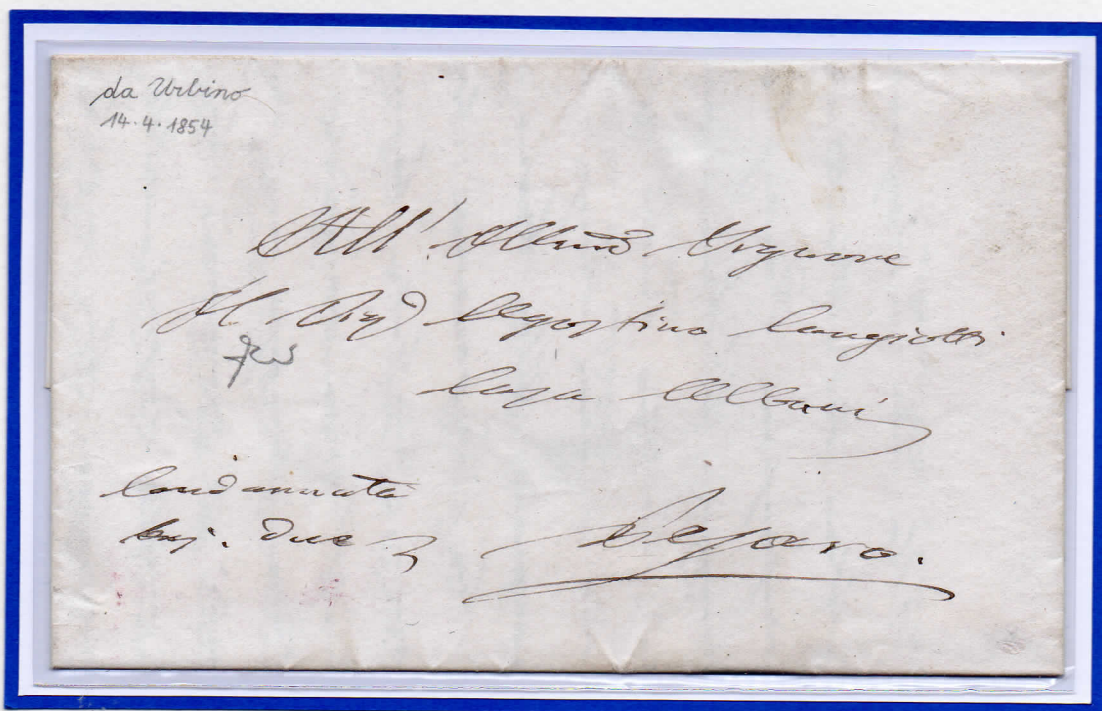 da Urbino
14.4.1854
All' Illmo Signore
Il Sigr Agostino Cangiotti
Casa Albani
Condannata
baj. due 2
Pesaro.